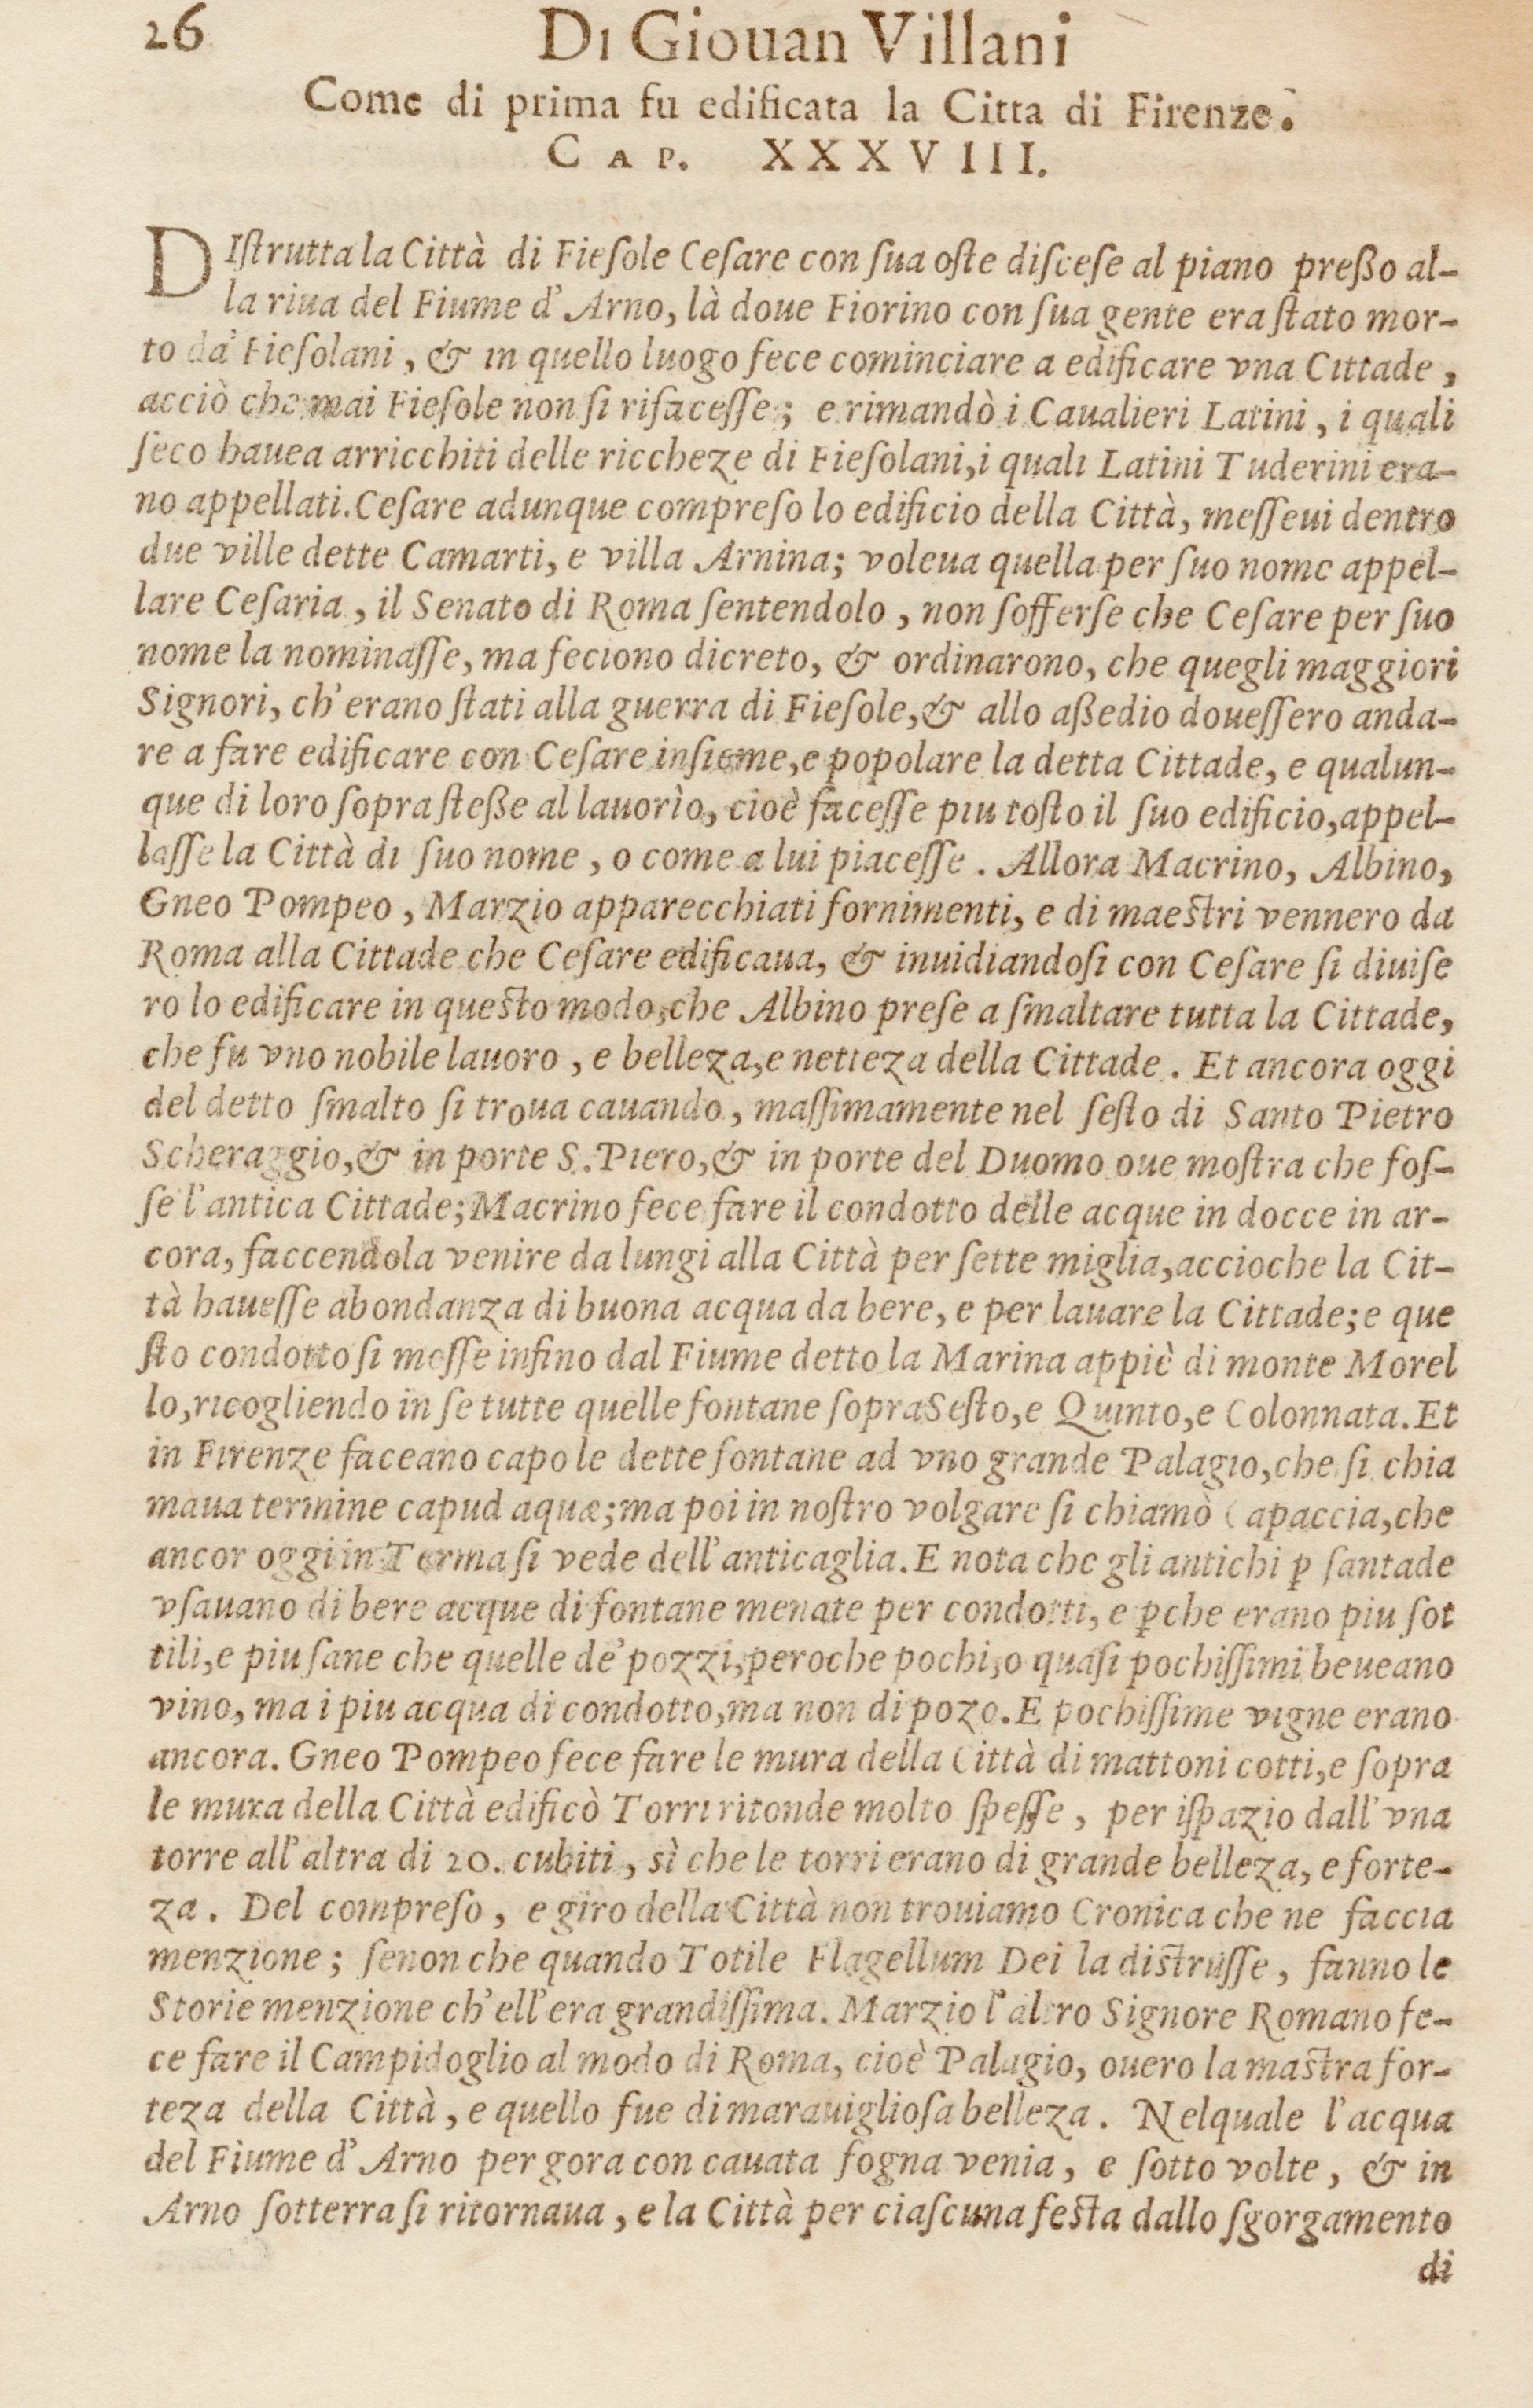 26
Di Giouan Villani
Come di prima fu edificata la Citta di Firenze.
CAP. XXXVIII.
DIſtrutta la Città di Fieſole Ceſare con ſua oſte diſceſe al piano preßo al-
la riua del Fiume d'Arno, là doue Fiorino con ſua gente era ſtato mor-
to da' Fieſolani, & in quello luogo fece cominciare a edificare vna Cittade,
acciò che mai Fieſole non ſi rifaceſſe; e rimandò i Caualieri Latini, i quali
ſeco hauea arricchiti delle riccheze di Fieſolani, i quali Latini Tuderini era-
no appellati. Ceſare adunque compreſo lo edificio della Città, meſſeui dentro
due ville dette Camarti, e villa Arnina; voleua quella per ſuo nome appel-
lare Ceſaria, il Senato di Roma ſentendolo, non ſofferſe che Ceſare per ſuo
nome la nominaſſe, ma feciono dicreto, & ordinarono, che quegli maggiori
Signori, ch'erano ſtati alla guerra di Fieſole, & allo aßedio doueſſero anda-
re a fare edificare con Ceſare inſieme, e popolare la detta Cittade, e qualun-
que di loro ſopraſteße al lauorìo, cioè faceſſe piu toſto il ſuo edificio, appel-
laſſe la Città di ſuo nome, o come a lui piaceſſe. Allora Macrino, Albino,
Gneo Pompeo, Marzio apparecchiati fornimenti, e di maeſtri vennero da
Roma alla Cittade che Ceſare edificaua, & inuidiandoſi con Ceſare ſi diuiſe
ro lo edificare in queſto modo, che Albino preſe a ſmaltare tutta la Cittade,
che fu vno nobile lauoro, e belleza, e netteza della Cittade. Et ancora oggi
del detto ſmalto ſi troua cauando, maſſimamente nel ſeſto di Santo Pietro
Scheraggio, & in porte S. Piero, & in porte del Duomo oue moſtra che foſ-
ſe l'antica Cittade; Macrino fece fare il condotto delle acque in docce in ar-
cora, faccendola venire da lungi alla Città per ſette miglia, accioche la Cit-
tà haueſſe abondanza di buona acqua da bere, e per lauare la Cittade; e que
ſto condotto ſi moſſe infino dal Fiume detto la Marina appiè di monte Morel
lo, ricogliendo in ſe tutte quelle fontane ſopra Seſto, e Quinto, e Colonnata. Et
in Firenze faceano capo le dette fontane ad vno grande Palagio, che ſi chia
maua termine capud aquæ; ma poi in noſtro volgare ſi chiamò Capaccia, che
ancor oggi in Terma ſi vede dell'anticaglia. E nota che gli antichi ꝑ ſantade
vſauano di bere acque di fontane menate per condotti, e ꝑche erano piu ſot
tili, e piu ſane che quelle de' pozzi, peroche pochi, o quaſi pochiſſimi beueano
vino, ma i piu acqua di condotto, ma non di pozo. E pochiſſime vigne erano
ancora. Gneo Pompeo fece fare le mura della Città di mattoni cotti, e ſopra
le mura della Città edificò Torri ritonde molto ſpeſſe, per iſpazio dall'vna
torre all'altra di 20. cubiti, sì che le torri erano di grande belleza, e forte-
za. Del compreſo, e giro della Città non trouiamo Cronica che ne faccia
menzione; ſenon che quando Totile Flagellum Dei la diſtruſſe, fanno le
Storie menzione ch'ell'era grandiſſima. Marzio l'altro Signore Romano fe-
ce fare il Campidoglio al modo di Roma, cioè Palagio, ouero la maſtra for-
teza della Città, e quello fue di marauiglioſa belleza. Nelquale l'acqua
del Fiume d'Arno per gora con cauata fogna venia, e ſotto volte, & in
Arno ſotterra ſi ritornaua, e la Città per ciaſcuna feſta dallo ſgorgamento
di